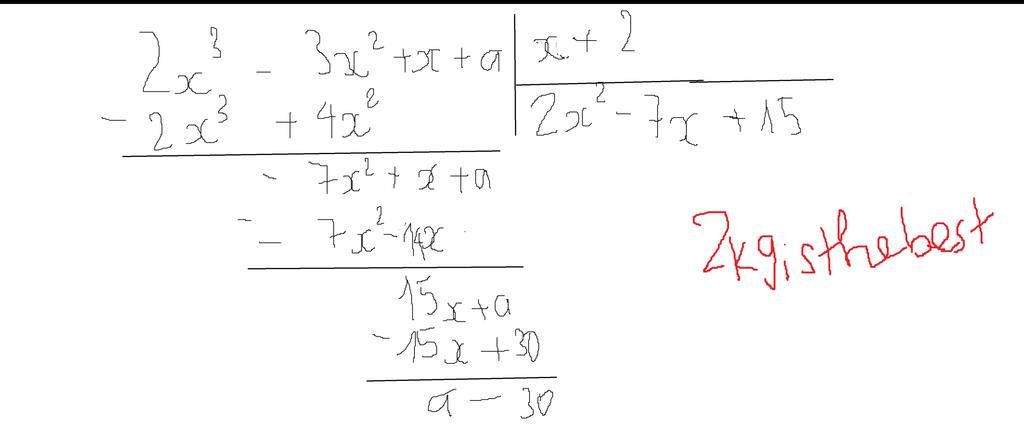 2x³ - 3x² + x + a | x + 2
- 2x³ + 4x² | 2x² - 7x + 15
- 7x² + x + a
- - 7x² - 14x
15x + a
- 15x + 30
a - 30
2kgisthebest